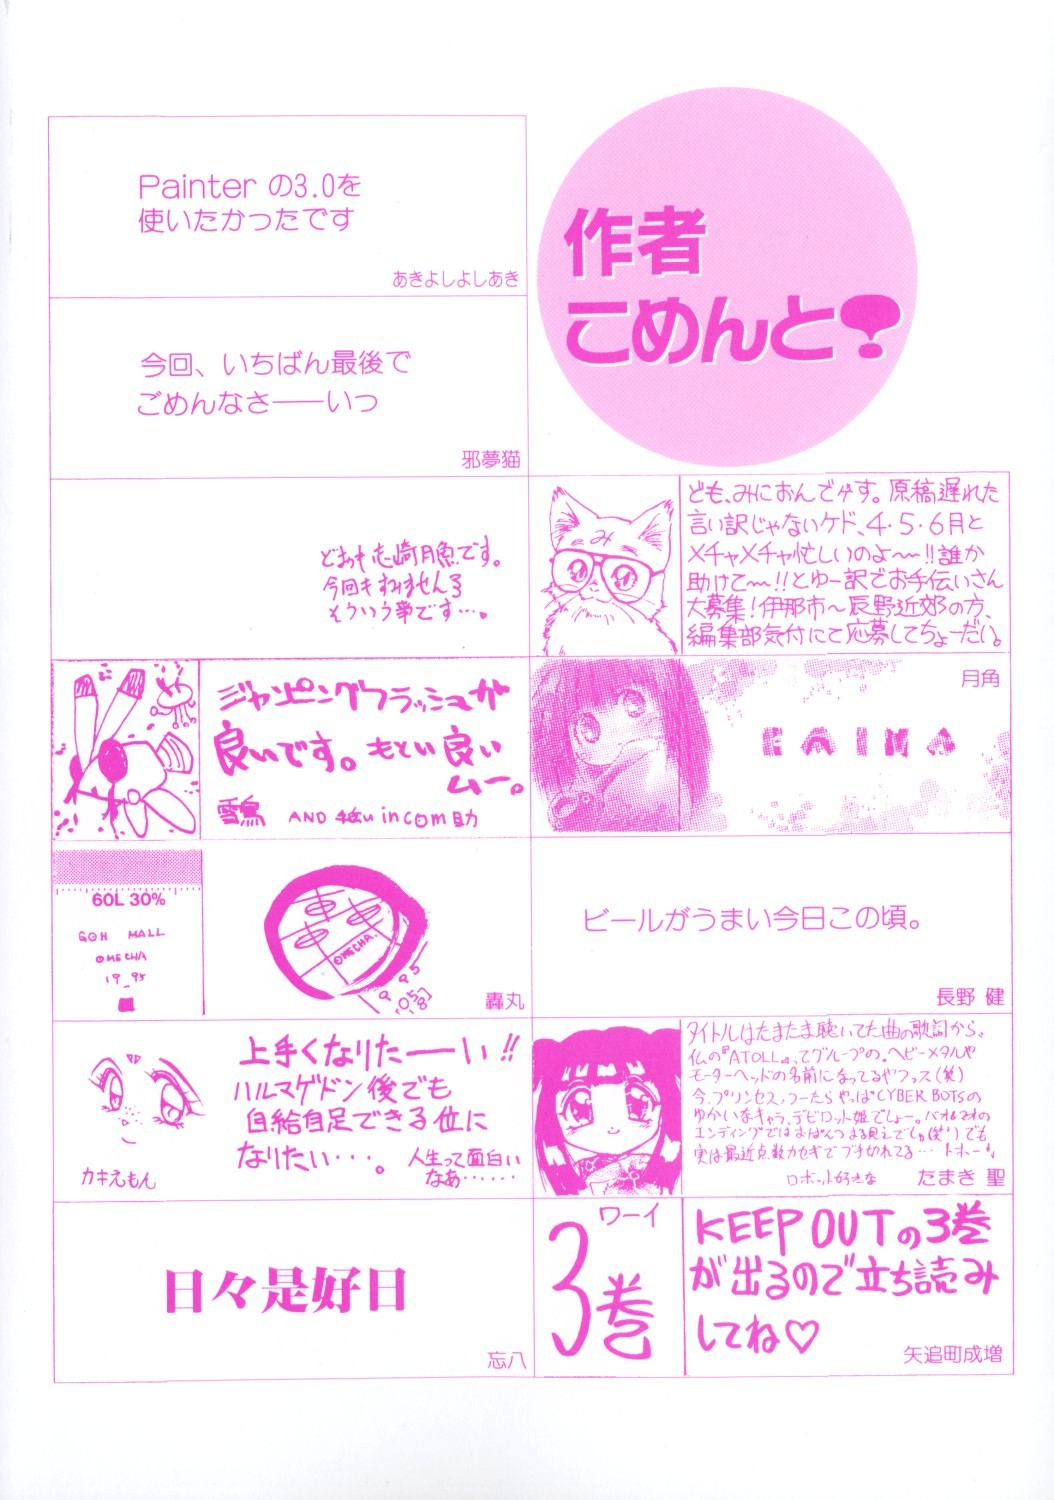 作者
こめんと?
Painter の3.0を
使いたかったです
あきよしよしあき
今回、いちばん最後で
ごめんなさ——いっ
邪夢猫
どおも志崎月魚です。
今回もすみませんろ
そういう事です…。
ども、みにおんでゲす。原稿遅れた
言い訳じゃないケド、4・5・6月と
メチャメチャ忙しいのよ〜!!誰か
助けて〜!!とゆー訳でお手伝いさん
大募集!伊那市〜辰野近郊の方、
編集部気付にて応募してちょーだい。
ジャンピングフラッシュが
良いです。もとい良い
ムー。
AND
in com助
月角
60L 30%
GOH MALL
OMECHA
19_95
OMECHA.
轟丸
ビールがうまい今日この頃。
長野 健
上手くなりたーーい!!
ハルマゲドン後でも
自給自足できる位に
なりたい・・・。
人生って面白い
なあ……
カキえもん
タイトルはたまたま聴いてた曲の歌詞から。
仏の『ATOLL』ってグループの。ヘビーメタルや
モーターヘッドの名前になってるヤツっス(笑)
今、プリンセス、つーたらやっぱ"CYBER BOTSの
ゆかいなキャラ、デビロット姫でしょー。バオー
エンディングではおぱんつまる見えでしゅ(笑)でも
実は最近点数カセギでブチ切れてる… トホー
ロボット好きな
たまき 聖
日々是好日
忘八
ワーイ
3巻
KEEP OUTの3巻
が出るので立ち読み
してね♡
矢追町成増